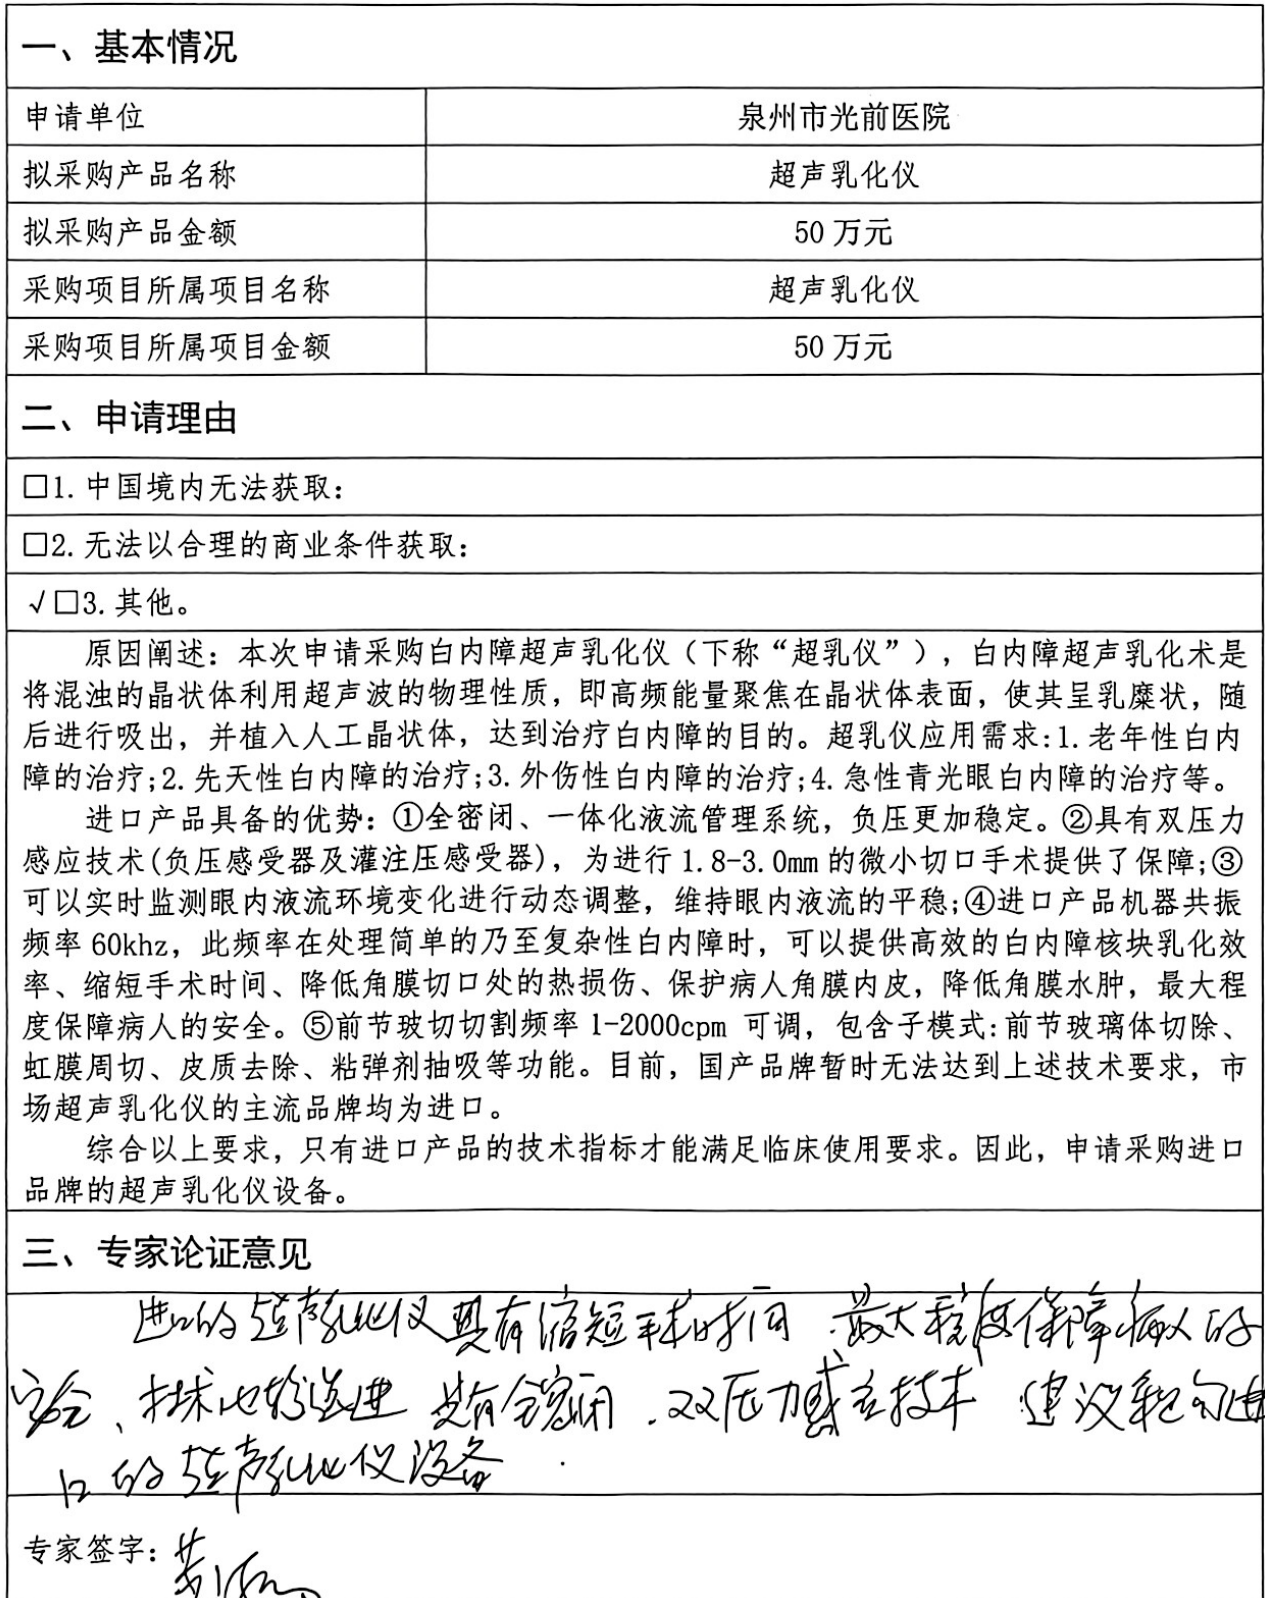 一、基本情况
申请单位 泉州市光前医院
拟采购产品名称 超声乳化仪
拟采购产品金额 50 万元
采购项目所属项目名称 超声乳化仪
采购项目所属项目金额 50 万元
二、申请理由
□1. 中国境内无法获取:
□2. 无法以合理的商业条件获取:
√□3. 其他。
原因阐述：本次申请采购白内障超声乳化仪（下称“超乳仪”），白内障超声乳化术是
将混浊的晶状体利用超声波的物理性质，即高频能量聚焦在晶状体表面，使其呈乳糜状，随
后进行吸出，并植入人工晶状体，达到治疗白内障的目的。超乳仪应用需求:1. 老年性白内
障的治疗;2. 先天性白内障的治疗;3. 外伤性白内障的治疗;4. 急性青光眼白内障的治疗等。
进口产品具备的优势：①全密闭、一体化液流管理系统，负压更加稳定。②具有双压力
感应技术(负压感受器及灌注压感受器)，为进行 1.8-3.0mm 的微小切口手术提供了保障;③
可以实时监测眼内液流环境变化进行动态调整，维持眼内液流的平稳;④进口产品机器共振
频率 60khz，此频率在处理简单的乃至复杂性白内障时，可以提供高效的白内障核块乳化效
率、缩短手术时间、降低角膜切口处的热损伤、保护病人角膜内皮，降低角膜水肿，最大程
度保障病人的安全。⑤前节玻切切割频率 1-2000cpm 可调，包含子模式:前节玻璃体切除、
虹膜周切、皮质去除、粘弹剂抽吸等功能。目前，国产品牌暂时无法达到上述技术要求，市
场超声乳化仪的主流品牌均为进口。
综合以上要求，只有进口产品的技术指标才能满足临床使用要求。因此，申请采购进口
品牌的超声乳化仪设备。
三、专家论证意见
进口的超声乳化仪具有缩短手术时间 最大程度保障病人的
安全、技术比较先进 具有全密闭 双压力感应技术 建议采购进
口的超声乳化仪设备
专家签字: 黄